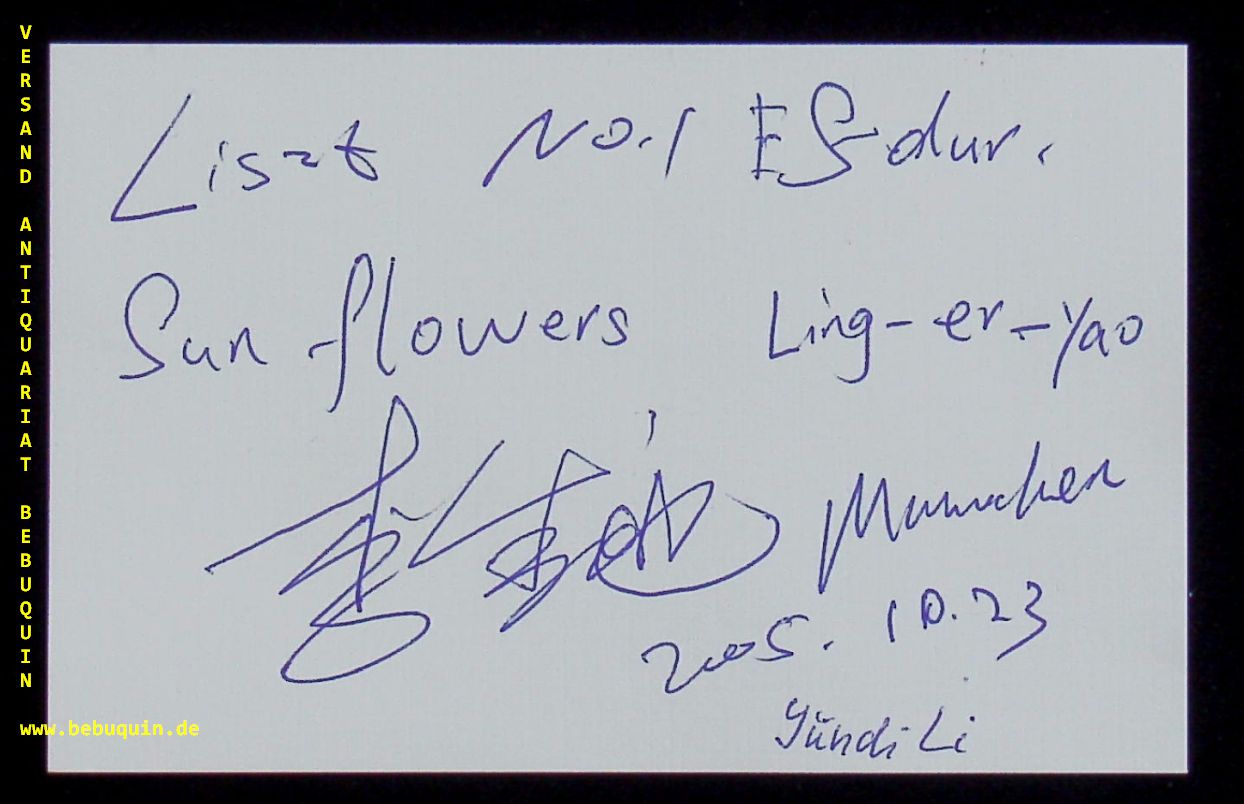 VERSAND ANTIQUARIAT BEBUQUIN
www.bebuquin.de
Liszt No.1 ES-dur.
Sun-flowers Ling-er-Yao
李云迪 Munchen
2005. 10.23
Yundi Li